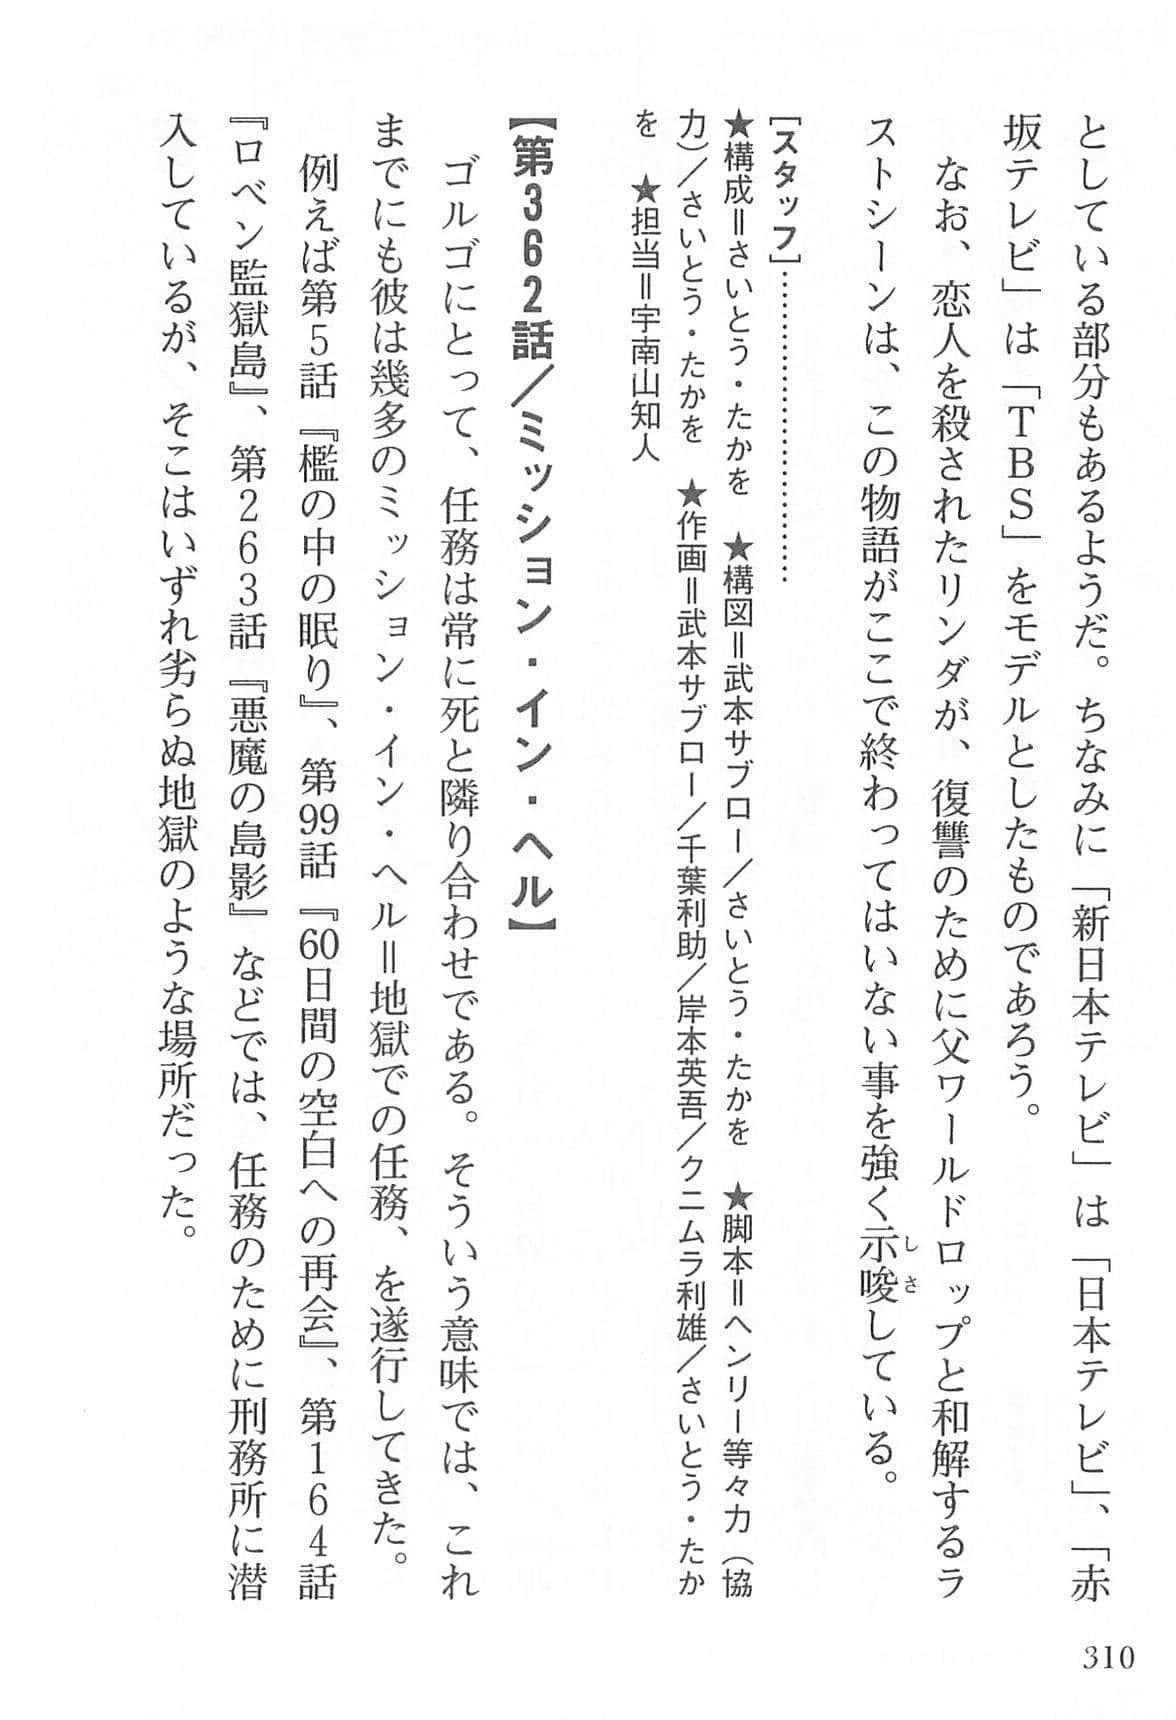 としている部分もあるようだ。ちなみに「新日本テレビ」は「日本テレビ」、「赤
坂テレビ」は「TBS」をモデルとしたものであろう。
なお、恋人を殺されたリンダが、復讐のために父ワールドロップと和解するラ
ストシーンは、この物語がここで終わってはいない事を強く示唆している。
しさ
[スタッフ]……………………………
★構成＝さいとう・たかを　★構図＝武本サブロー／さいとう・たかを　★脚本＝ヘンリー等々力（協
力）／さいとう・たかを　★作画＝武本サブロー／千葉利助／岸本英吾／クニムラ利雄／さいとう・たか
を　★担当＝宇南山知人
【第362話／ミッション・イン・ヘル】
ゴルゴにとって、任務は常に死と隣り合わせである。そういう意味では、これ
までにも彼は幾多のミッション・イン・ヘル＝地獄での任務、を遂行してきた。
例えば第5話『檻の中の眠り』、第99話『60日間の空白への再会』、第164話
『ロベン監獄島』、第263話『悪魔の島影』などでは、任務のために刑務所に潜
入しているが、そこはいずれ劣らぬ地獄のような場所だった。
310